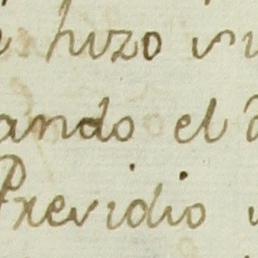 hizo
ando el
Previdio